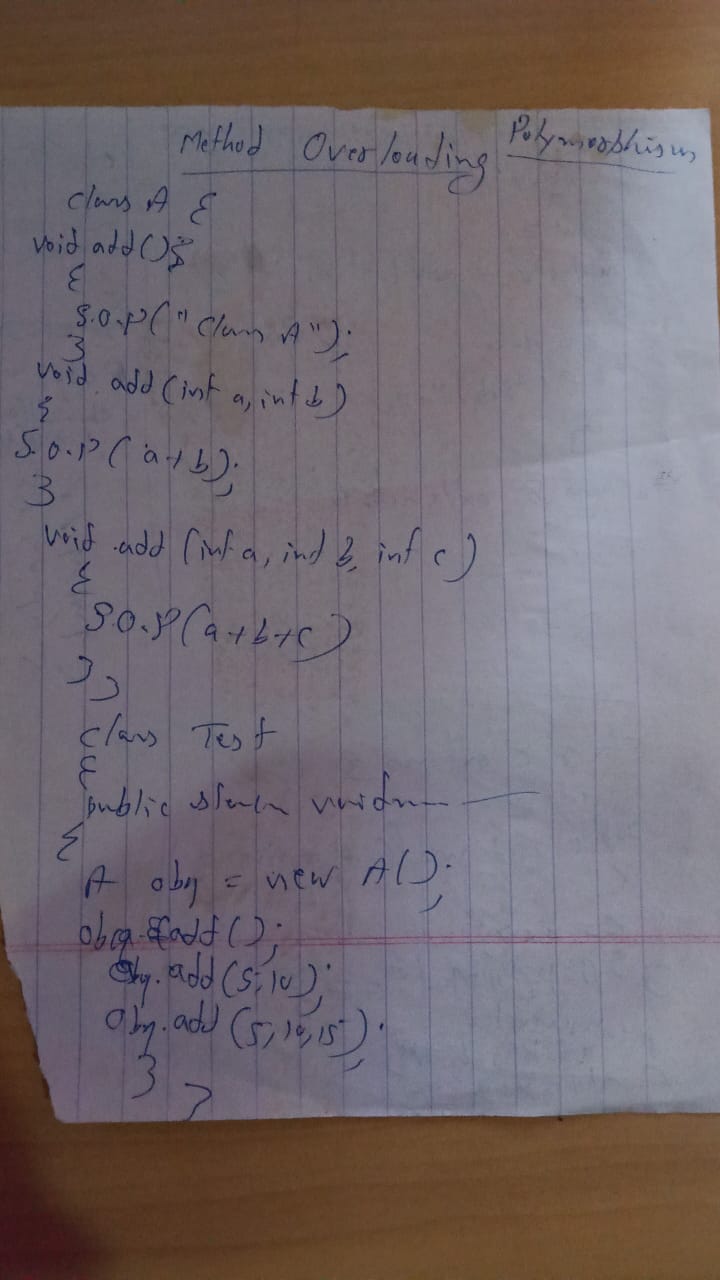 Method Overloading Polymorphism
class A {
void add()
{
S.O.P("Class A");
}
void add(int a, int b)
{
S.O.P(a+b);
}
void add(int a, int b, int c)
{
S.O.P(a+b+c)
}}
class Test
{
public static void
{
A obj = new A();
obj.add();
obj.add(5,10);
obj.add(5,10,15);
}
}